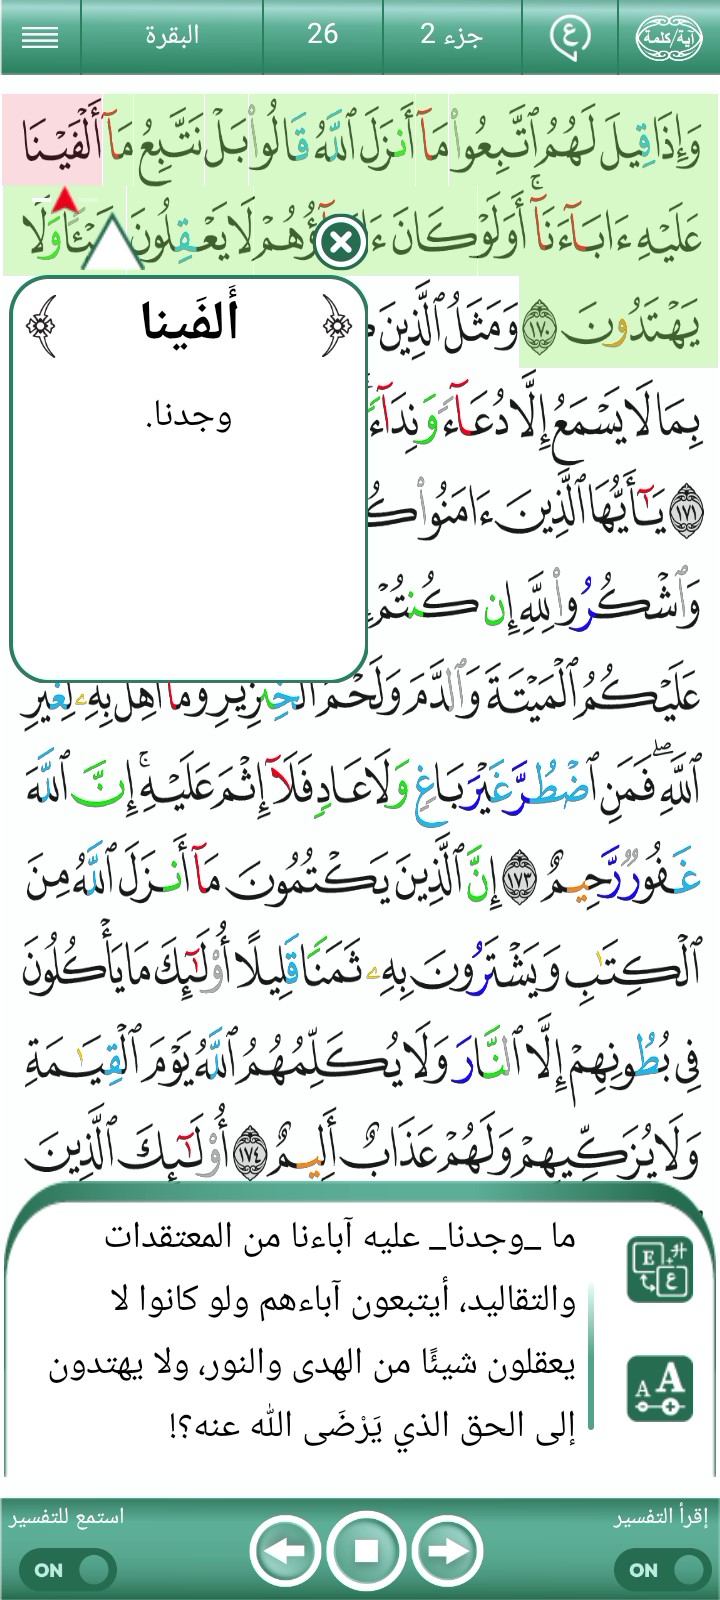 آية/كلمة
ع
جزء 2
26
البقرة
وَإِذَا قِيلَ لَهُمُ ٱتَّبِعُوا۟ مَآ أَنزَلَ ٱللَّهُ قَالُوا۟ بَلْ نَتَّبِعُ مَآ أَلْفَيْنَا
عَلَيْهِ ءَابَآءَنَآ ۚ أَوَلَوْ كَانَ ءَابَآؤُهُمْ لَا يَعْقِلُونَ شَيْـًٔا وَلَا
يَهْتَدُونَ ١٧٠ وَمَثَلُ ٱلَّذِينَ
بِمَا لَا يَسْمَعُ إِلَّا دُعَآءً وَنِدَآءً
١٧١ يَـٰٓأَيُّهَا ٱلَّذِينَ ءَامَنُوا۟
وَٱشْكُرُوا۟ لِلَّهِ إِن كُنتُمْ
عَلَيْكُمُ ٱلْمَيْتَةَ وَٱلدَّمَ وَلَحْمَ ٱلْخِنزِيرِ وَمَآ أُهِلَّ بِهِۦ لِغَيْرِ
ٱللَّهِ ۖ فَمَنِ ٱضْطُرَّ غَيْرَ بَاغٍ وَلَا عَادٍ فَلَآ إِثْمَ عَلَيْهِ ۚ إِنَّ ٱللَّهَ
غَفُورٌ رَّحِيمٌ ١٧٣ إِنَّ ٱلَّذِينَ يَكْتُمُونَ مَآ أَنزَلَ ٱللَّهُ مِنَ
ٱلْكِتَـٰبِ وَيَشْتَرُونَ بِهِۦ ثَمَنًا قَلِيلًا أُو۟لَـٰٓئِكَ مَا يَأْكُلُونَ
فِى بُطُونِهِمْ إِلَّا ٱلنَّارَ وَلَا يُكَلِّمُهُمُ ٱللَّهُ يَوْمَ ٱلْقِيَـٰمَةِ
وَلَا يُزَكِّيهِمْ وَلَهُمْ عَذَابٌ أَلِيمٌ ١٧٤ أُو۟لَـٰٓئِكَ ٱلَّذِينَ
أَلفَينا
وجدنا.
ما _وجدنا_ عليه آباءنا من المعتقدات
والتقاليد، أيتبعون آباءهم ولو كانوا لا
يعقلون شيئًا من الهدى والنور، ولا يهتدون
إلى الحق الذي يَرْضَى الله عنه؟!
إقرأ التفسير
ON
استمع للتفسير
ON